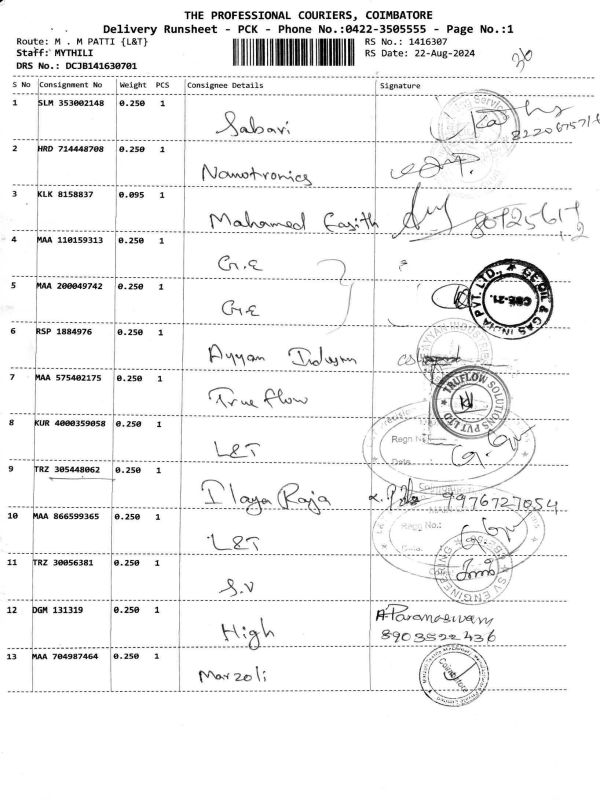 THE PROFESSIONAL COURIERS, COIMBATORE
Delivery Runsheet - PCK - Phone No.:0422-3505555 - Page No.:1
Route: M . M PATTI {L&T}
RS No.: 1416307
Staff: MYTHILI
RS Date: 22-Aug-2024
DRS No.: DCJB141630701
S No Consignment No Weight PCS Consignee Details Signature
1 SLM 353002148 0.250 1 Sabari
2 HRD 714448708 0.250 1 Nanotronics
3 KLK 8158837 0.095 1 Mahamed Fasith
4 MAA 110159313 0.250 1 G.E
5 MAA 200049742 0.250 1 G.E
GE OIL & GAS INDIA PVT. LTD.,
CBE-21.
6 RSP 1884976 0.250 1 Ayyan
7 MAA 575402175 0.250 1 True flow
TRUFLOW SOLUTIONS PVT LTD
8 KUR 4000359058 0.250 1 L&T
Regn No.:
Date
9 TRZ 305448062 0.250 1 Ilaya Raja 9976727054
10 MAA 866599365 0.250 1 L&T
Regn No.:
Date
11 TRZ 30056381 0.250 1 S.V
SV ENGINEERING
12 DGM 131319 0.250 1 High A.Paramaswam
8903522436
13 MAA 704987464 0.250 1 Marzoli
Coimbatore